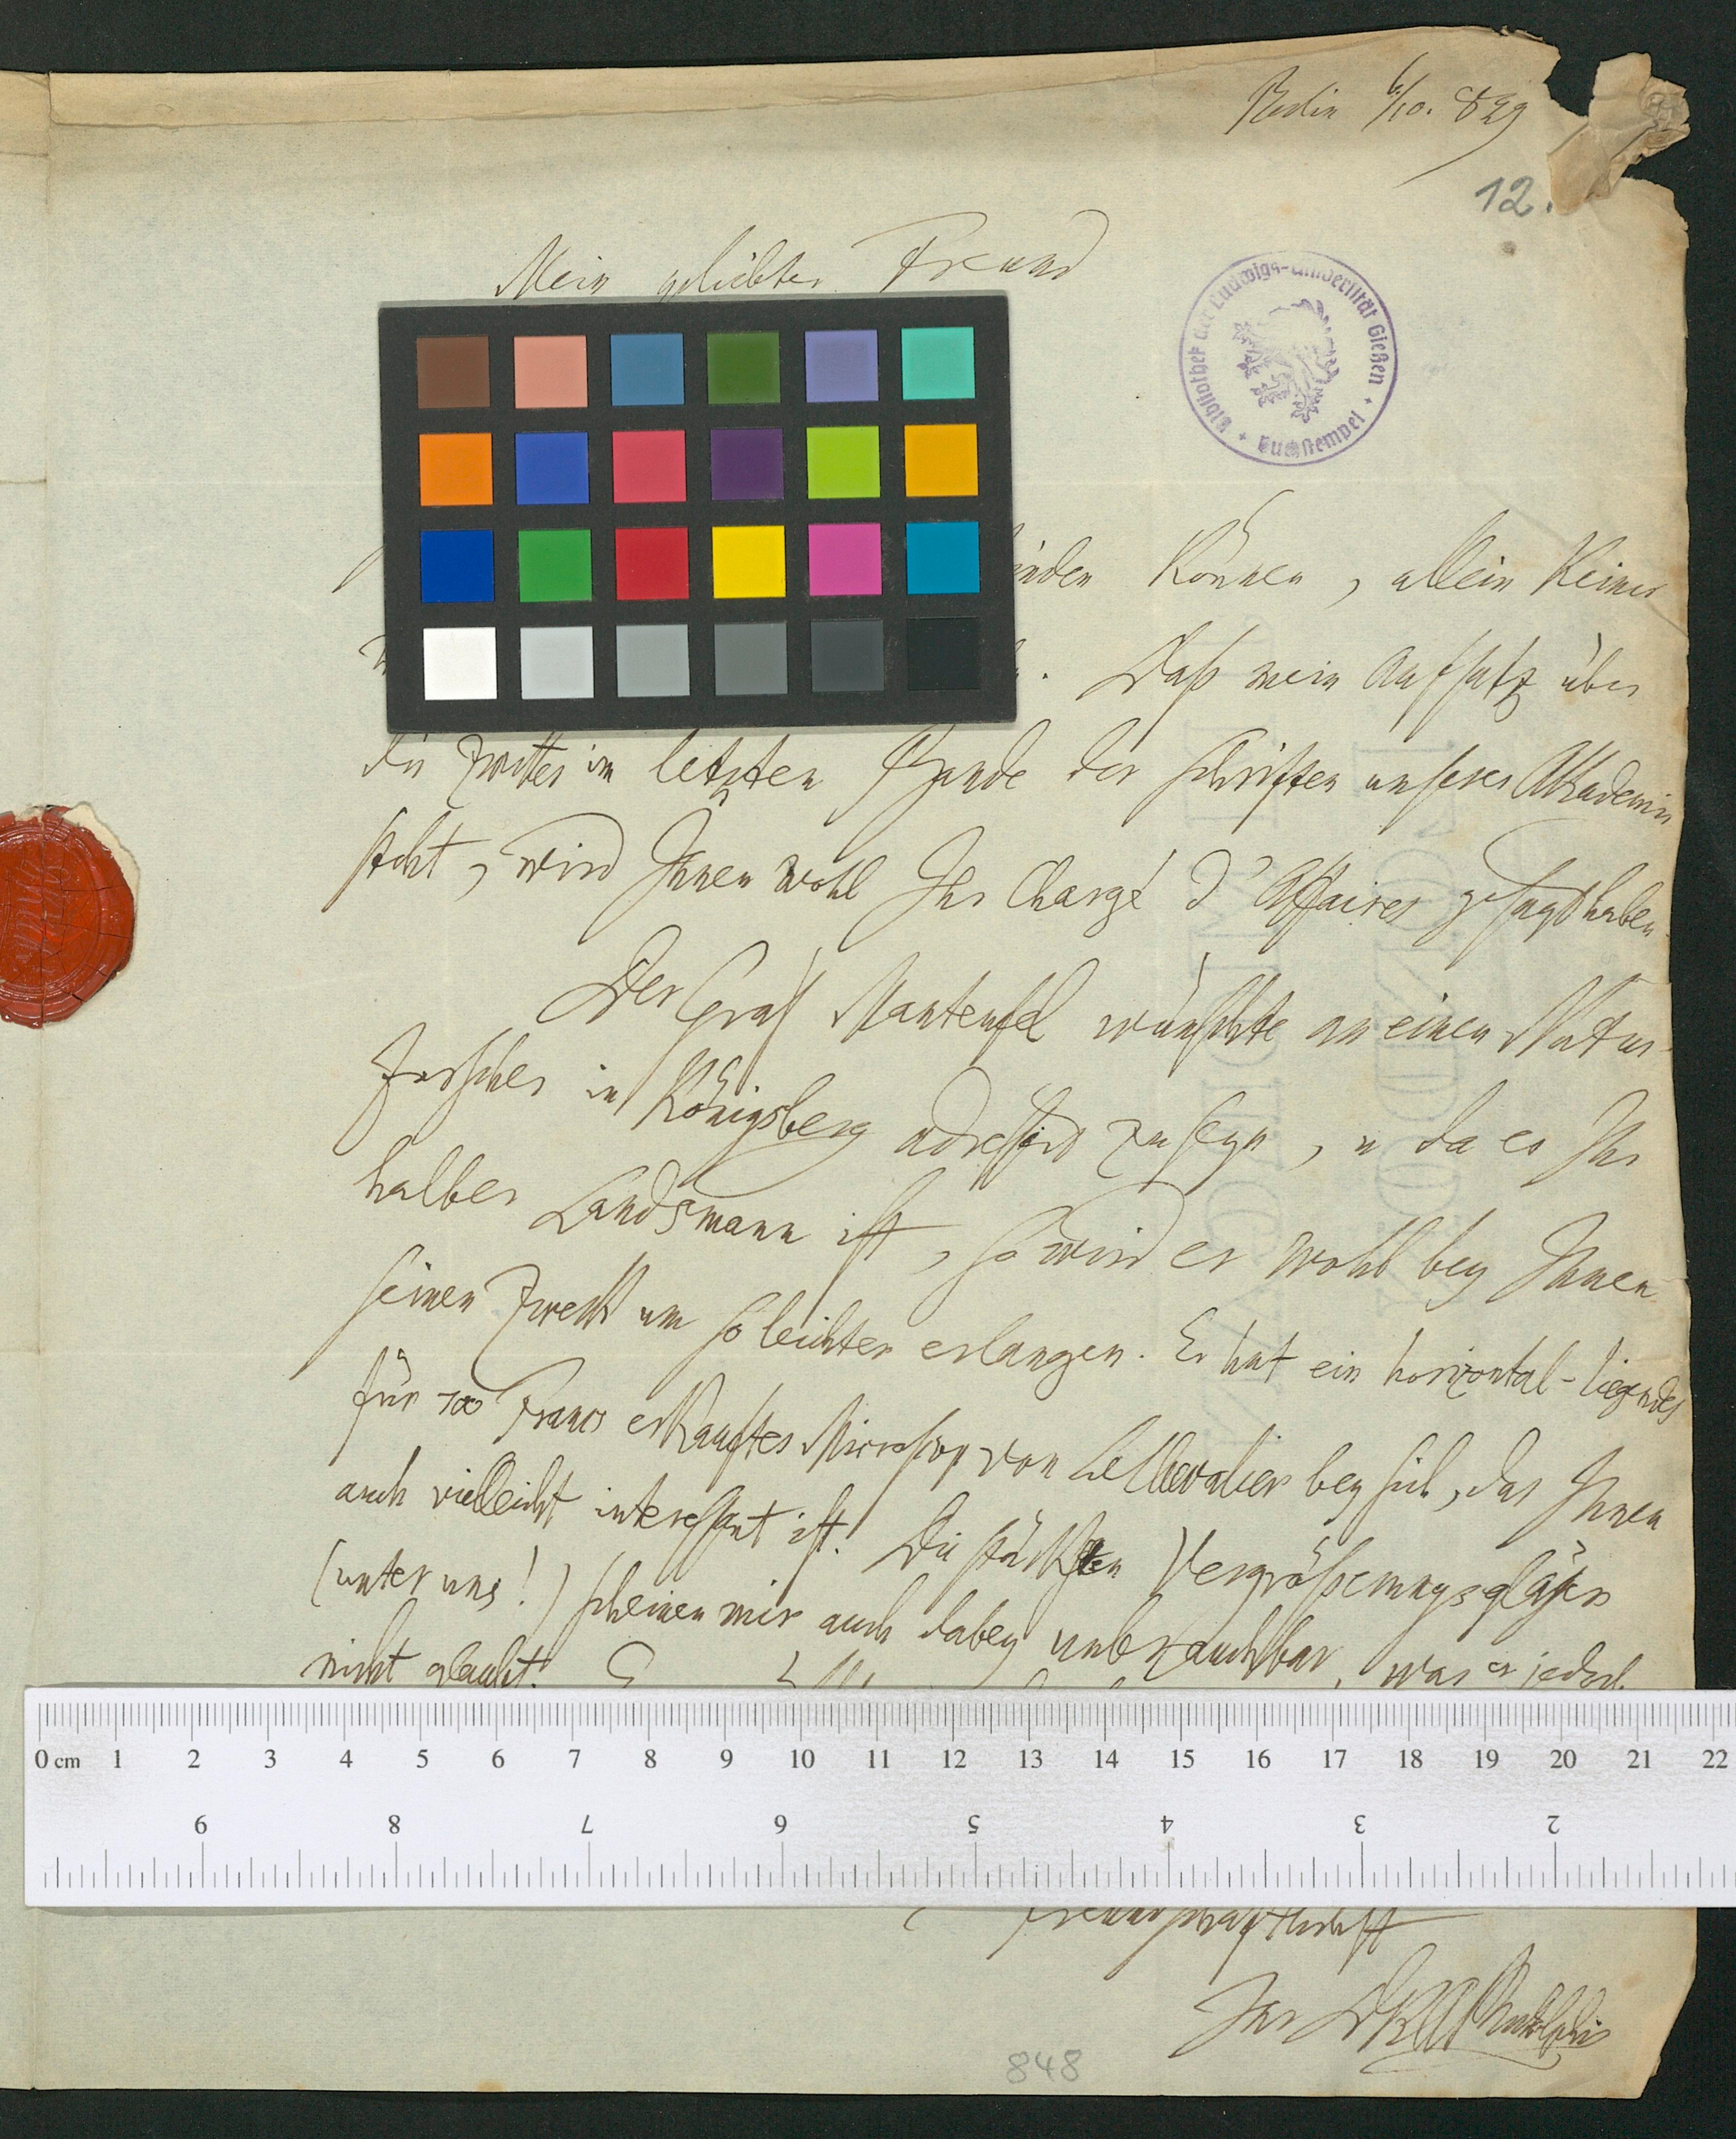 Berlin 6/10. 829
12.
Mein geliebter Freund
Bibliothek der Ludwigs-Universität Gießen + Buchstempel +
inden können, allein Keiner
. Daß mein Aufsatz über
die Zwitter im letzten Bande der Schriften unserer Akademie
steht, wird Ihnen wohl Ihr Chargé d'Affaires gesagt haben.
Der Graf Manteufel wünschte an einen Natur-
forscher in Königsberg adressirt zu seyn, u da er Ihr
halber Landsmann ist, so wird er wohl bey Ihnen
seinen Zweck um so leichter erlangen. Er hat ein horizontal-liegendes
für 700 Francs erkauftes Microscop von Chevalier bey sich, das Ihnen
auch vielleicht interessant ist. Die stärksten Vergrößerungsgläser
(unter uns!) scheinen mir auch dabey unbrauchbar, was er jedoch
nicht glaubt.
0 cm 1 2 3 4 5 6 7 8 9 10 11 12 13 14 15 16 17 18 19 20 21 22
9 8 7 6 5 4 3 2
freundschaftlichst
Ihr DKARudolphi
848